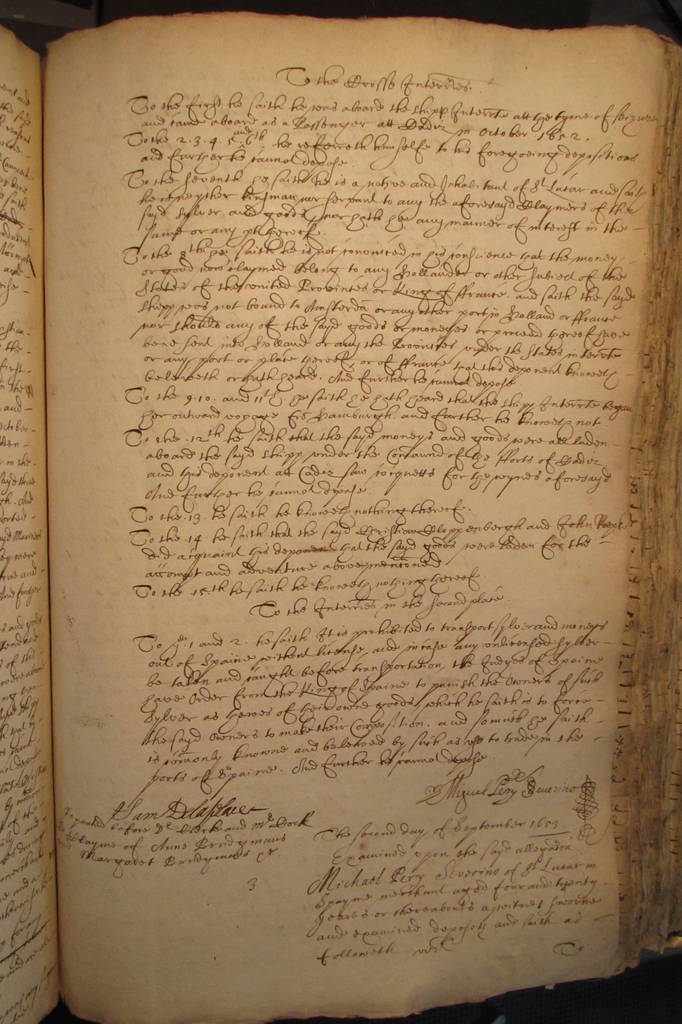 To the Crosse Interries.
To the first he saith he was aboard the shipp Interrte att the tyme of seizure
and came aboard as a Passenger att Cadez in October 1652.
To the 2. 3. 4. 5 and 6th he referreth himselfe to his foregoeing depositions
and further he cannot depose.
To the seventh he saith he is a native and Inhabitant of St Lucar and saith
he is neyther kinsman nor servant to any the aforesayd Claymers of the
sayd sylver and goods, nor hath hee any manner of interest in the
same or any pt thereof.
To the 8th he saith he is not convinced in his conscience that the money
or good now claymed belong to any Hollander or other Subiect of the
States of the united Provinces or King of ffrance. and saith the sayd
shipp was not bound to Amsterdam or any other port in Holland or ffrance
nor should any of the sayd goods or moneyes or proceed thereof have
bene sent into Holland or any the Provinces under the States
or any port or place thereof, or of ffrance that this deponent knoweth
beleeveth or hath heard. And further he cannot depose
To the 9. 10. and 11th he saith he hath heard that the shipp Interrte began
her outward voyage from Hamburgh. and further he knoweth not
To the 12th he saith that the sayd moneys and goods were all laden
aboard the sayd shipp under the Command of the fforts of Cadez
and this deponent att Cadez saw for the
And further he cannot depose
To the .13. he saith he knoweth nothing thereof.
To the 14 he saith that the sayd Christian Cloppenbergh and John
did acquaint this deponent that the sayd goods were laden for the
account and adventure abovementioned
To the 15th he saith he knoweth nothing thereof
To the Interries in the second place
To ye 1 and 2. he saith It is prohibited to transport sylver and moneys
out of Spaine without license, and in case any unlicensed sylver
be taken and caught before transportation, the Judges of Spaine
have Order from the King of Spaine to punish the Owners of such
sylver as theeves of their owne goods, which he saith is to force
the sayd Owners to make their Composition. and so much he saith
is comonly knowne and beleeved by such as use to trade in the
ports of Spaine. And further he cannot depose
Miguel Pery Severino
Sam Delaplace
Repeated before Dr Clerk and Mr Cock
Clayme of Anne Bridymans
Margaret Bridymans &c
3
The second day of September 1653
Examined upon the sayd allegation
Michael Pery Severino of St Lucar in
Spayne merchant aged four and twenty
yeares or thereabouts a witnes sworne
and examined deposeth and saith as
followeth vizt
To